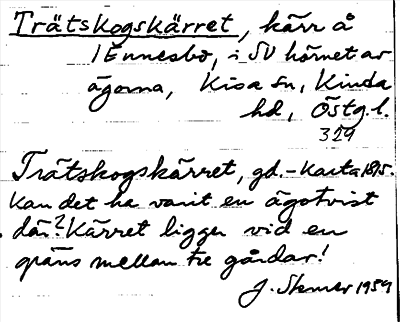 Trätskogskärret, kärr å
1 Ennesbo, i SV hörnet av
ägorna, Kisa sn, Kinda
hd, Östg. l.
329
Trätskogskärret, gd.-karta 1815.
Kan det ha varit en ägotvist
där? Kärret ligger vid en
gräns mellan tre gårdar!
J. 1959